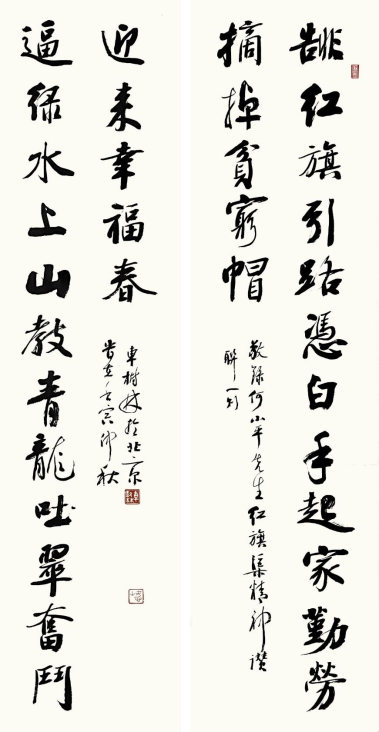 靠红旗引路憑白手起家勤勞
摘掉貧窮帽
敬録何小平先生红旗渠精神讚
聯一则
逼绿水上山教青龍吐翠奮鬥
迎来幸福春
岁在壬寅仲秋
卓樹林於北京